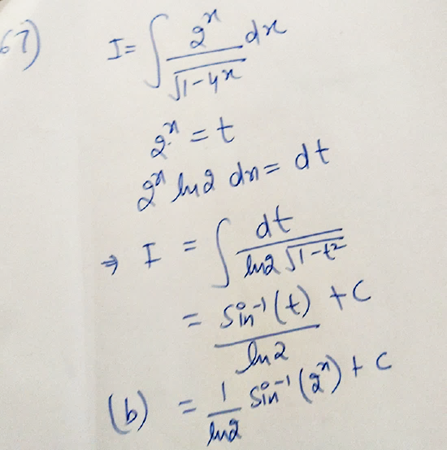 67) I = ∫ 2^x / √(1-4^x) dx
2^x = t
2^x ln2 dx = dt
⇒ I = ∫ dt / (ln2 √(1-t²))
= sin⁻¹(t) / ln2 + C
(b) = 1/ln2 sin⁻¹(2^x) + C